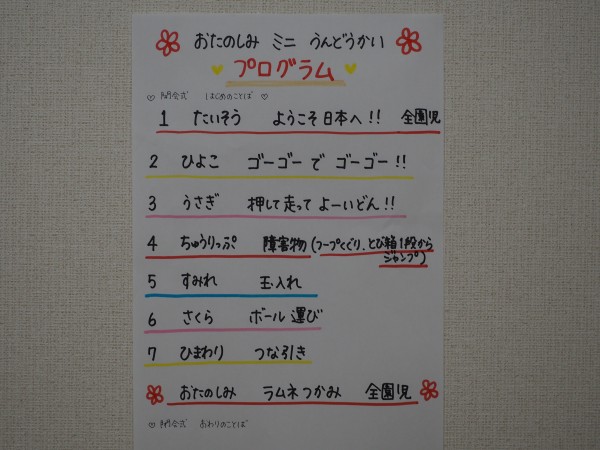 おたのしみ ミニ うんどうかい
プログラム
開会式 はじめのことば
1 たいそう ようこそ日本へ!! 全園児
2 ひよこ ゴーゴーで ゴーゴー!!
3 うさぎ 押して走って よーいどん!!
4 ちゅうりっぷ 障害物(フープくぐり、とび箱1段から
ジャンプ)
5 すみれ 玉入れ
6 さくら ボール運び
7 ひまわり つな引き
おたのしみ ラムネつかみ 全園児
閉会式 おわりのことば